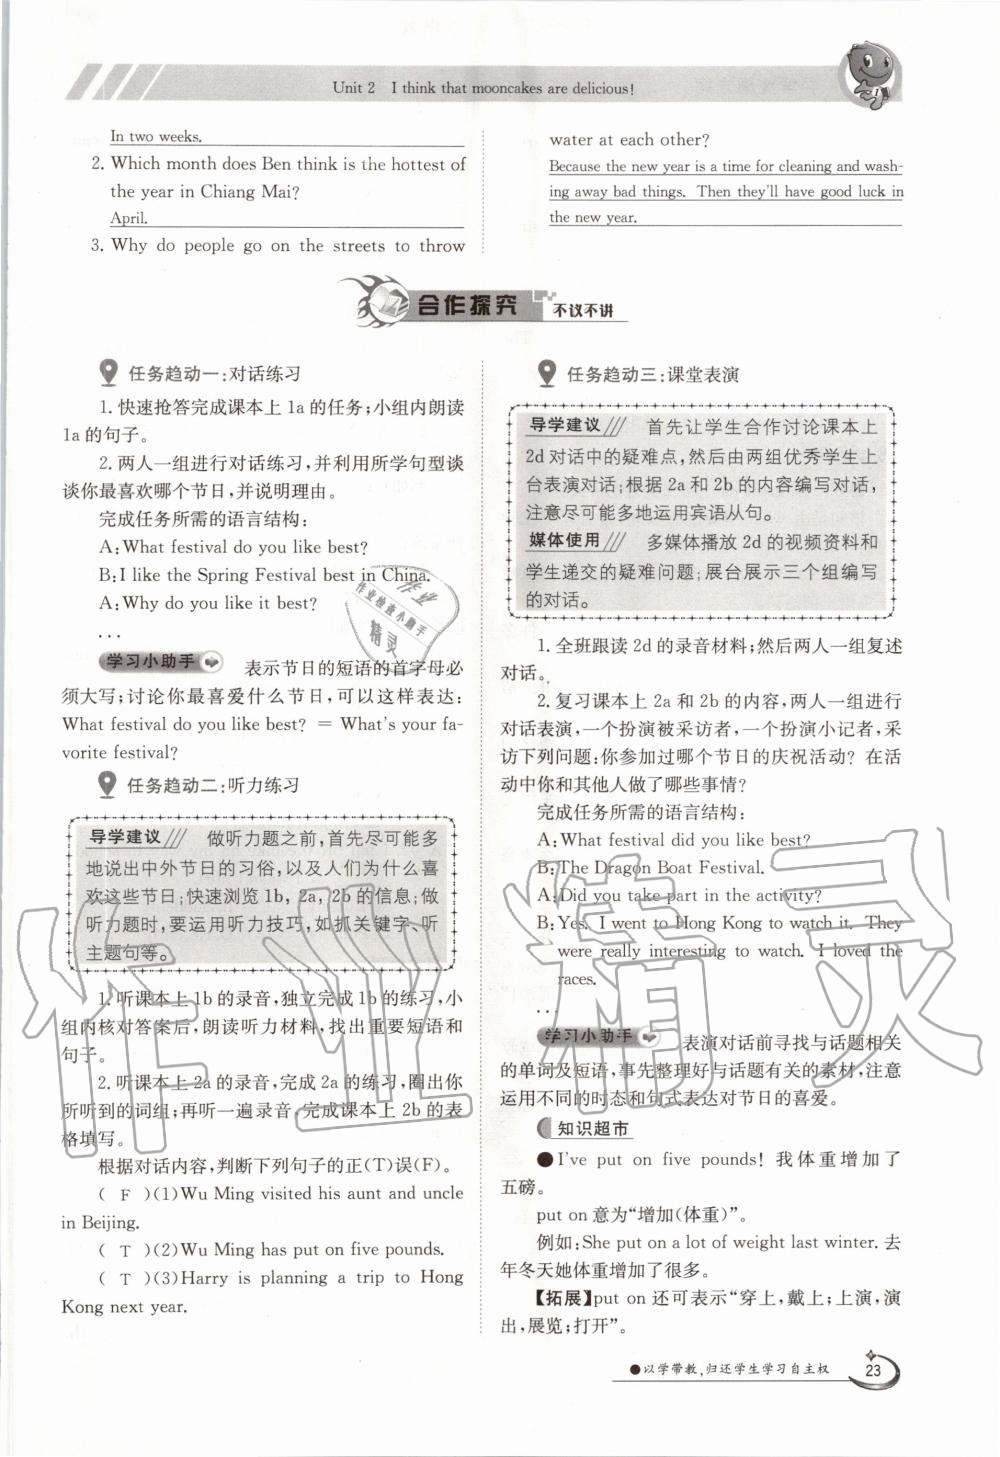 Unit 2 I think that mooncakes are delicious!
In two weeks.
2. Which month does Ben think is the hottest of
the year in Chiang Mai?
April.
3. Why do people go on the streets to throw
water at each other?
Because the new year is a time for cleaning and wash-
ing away bad things. Then they'll have good luck in
the new year.
合作探究 不议不讲
任务趋动一:对话练习
1. 快速抢答完成课本上 1a 的任务;小组内朗读
1a 的句子。
2. 两人一组进行对话练习,并利用所学句型谈
谈你最喜欢哪个节日,并说明理由。
完成任务所需的语言结构:
A:What festival do you like best?
B:I like the Spring Festival best in China.
A:Why do you like it best?
...
学习小助手 表示节日的短语的首字母必
须大写;讨论你最喜爱什么节日,可以这样表达:
What festival do you like best? = What's your fa-
vorite festival?
任务趋动二:听力练习
导学建议 做听力题之前,首先尽可能多
地说出中外节日的习俗,以及人们为什么喜
欢这些节日;快速浏览 1b, 2a, 2b 的信息;做
听力题时,要运用听力技巧,如抓关键字、听
主题句等。
1. 听课本上 1b 的录音,独立完成 1b 的练习,小
组内核对答案后,朗读听力材料,找出重要短语和
句子。
2. 听课本上 2a 的录音,完成 2a 的练习,圈出你
所听到的词组;再听一遍录音,完成课本上 2b 的表
格填写。
根据对话内容,判断下列句子的正(T)误(F)。
( F )(1)Wu Ming visited his aunt and uncle
in Beijing.
( T )(2)Wu Ming has put on five pounds.
( T )(3)Harry is planning a trip to Hong
Kong next year.
任务趋动三:课堂表演
导学建议 首先让学生合作讨论课本上
2d 对话中的疑难点,然后由两组优秀学生上
台表演对话;根据 2a 和 2b 的内容编写对话,
注意尽可能多地运用宾语从句。
媒体使用 多媒体播放 2d 的视频资料和
学生递交的疑难问题;展台展示三个组编写
的对话。
1. 全班跟读 2d 的录音材料;然后两人一组复述
对话。
2. 复习课本上 2a 和 2b 的内容,两人一组进行
对话表演,一个扮演被采访者,一个扮演小记者,采
访下列问题:你参加过哪个节日的庆祝活动? 在活
动中你和其他人做了哪些事情?
完成任务所需的语言结构:
A:What festival did you like best?
B:The Dragon Boat Festival.
A:Did you take part in the activity?
B:Yes. I went to Hong Kong to watch it. They
were really interesting to watch. I loved the
races.
...
学习小助手 表演对话前寻找与话题相关
的单词及短语,事先整理好与话题有关的素材,注意
运用不同的时态和句式表达对节日的喜爱。
知识超市
●I've put on five pounds! 我体重增加了
五磅。
put on 意为“增加(体重)”。
例如:She put on a lot of weight last winter. 去
年冬天她体重增加了很多。
【拓展】put on 还可表示“穿上,戴上;上演,演
出,展览;打开”。
●以学带教,归还学生学习自主权 23
作业
作业检查小助手
精灵
作业精灵